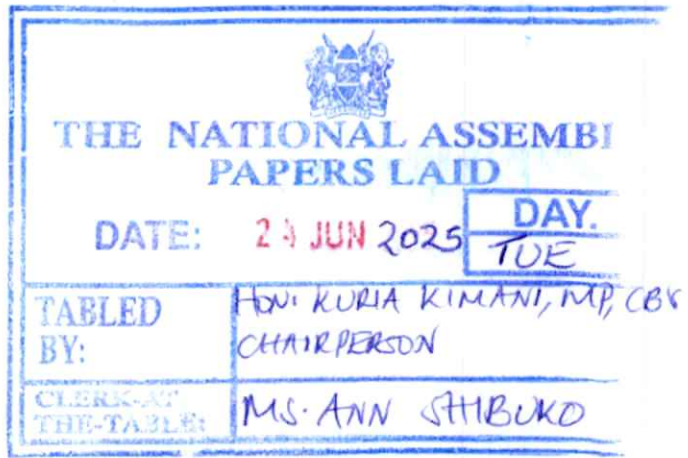 THE NATIONAL ASSEMBL
PAPERS LAID
DATE: 24 JUN 2025
DAY.
TUE
TABLED BY: HON. KURIA KIMANI, MP, CBS
CHAIRPERSON
CLERK-AT THE-TABLE: MS. ANN SHIBUKO